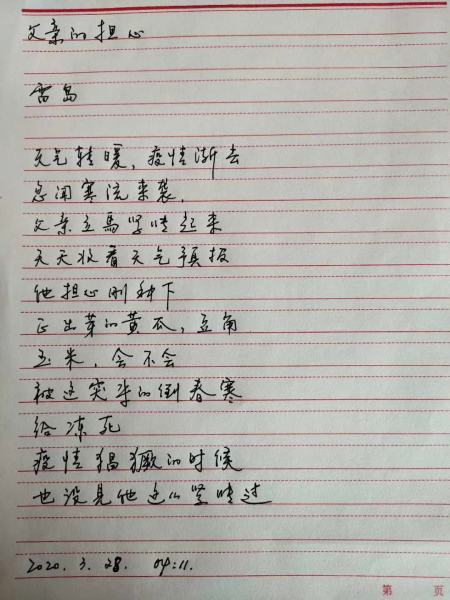 父亲的担心
雷岛
天气转暖，疫情渐去
忽闻寒流来袭，
父亲立馬紧张起来
天天收看天气预报
他担心刚种下
正出芽的黄瓜，豆角
玉米，会不会
被这突来的倒春寒
给冻死
疫情猖獗的时候
也没見他这么紧张过
2020.3.28. 04:11.
第 页